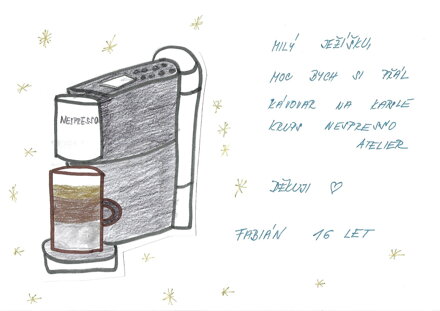 NESPRESSO
MILÝ JEŽÍŠKU,
MOC BYCH SI PŘÁL
KÁVOVAR NA KAPSLE
KRUPS NESPRESSO
ATELIER
DĚKUJI ♡
FABIÁN 16 LET